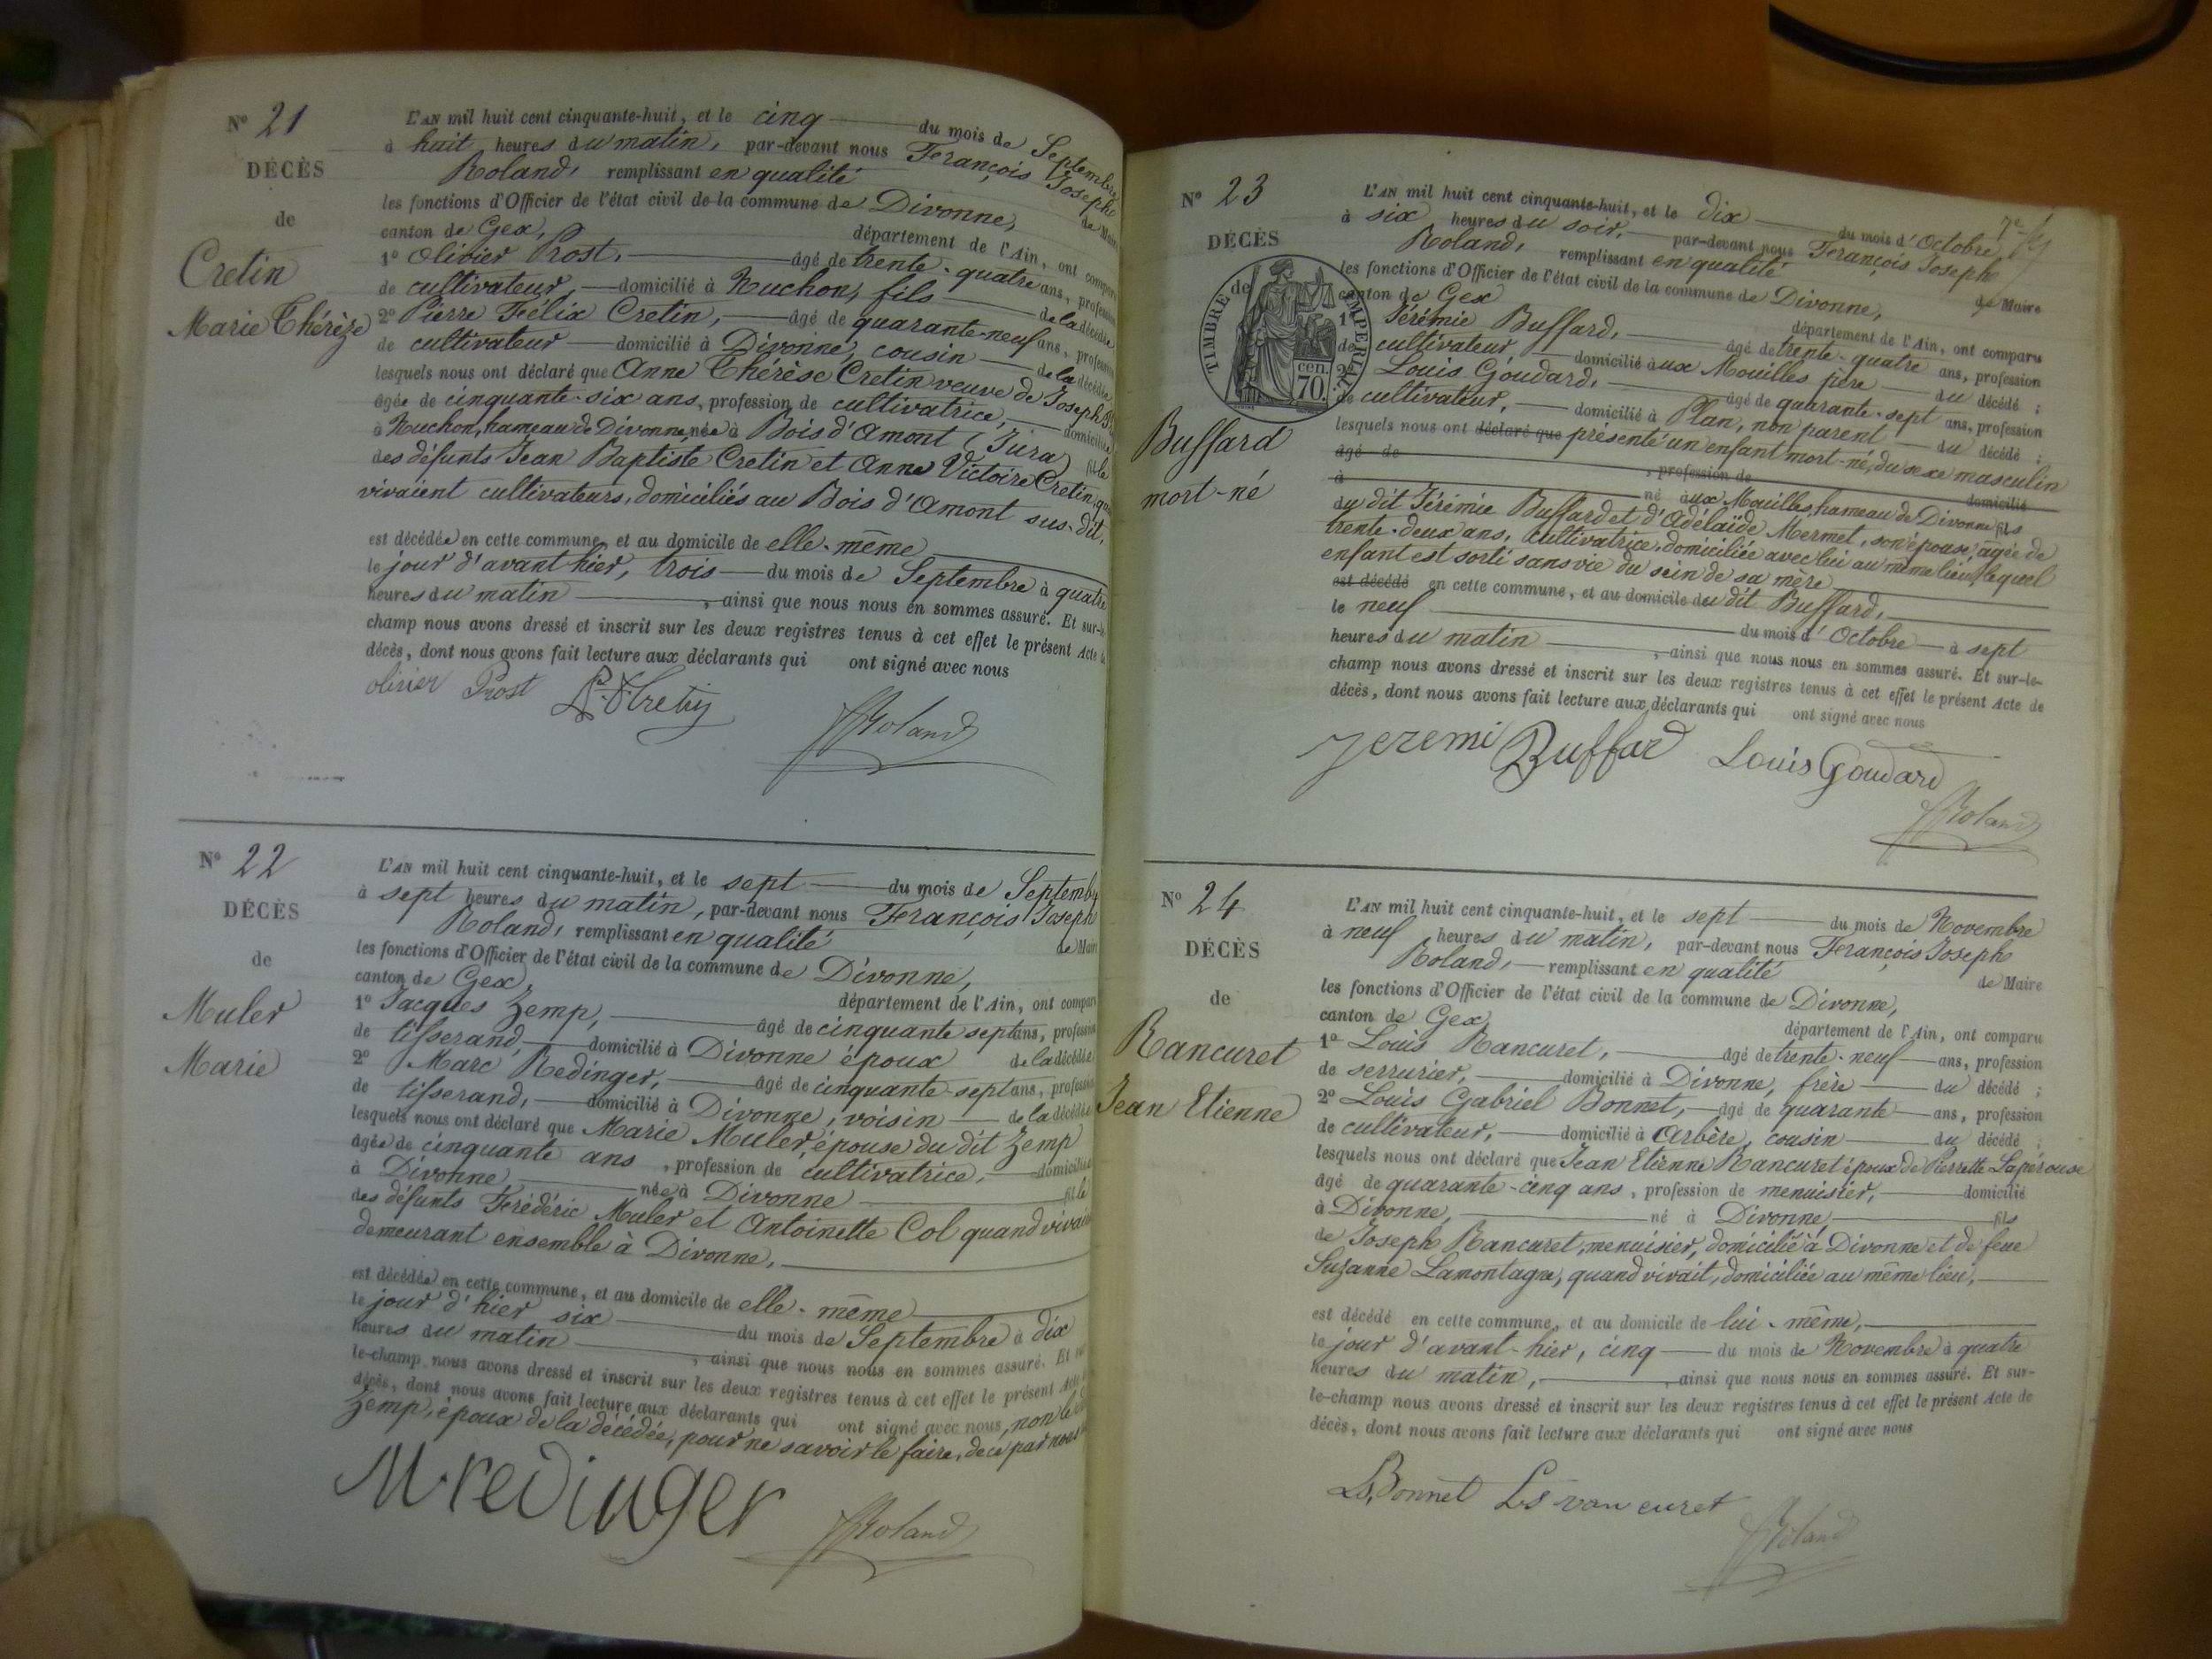 N° 21
DÉCÈS
de
Cretin
Marie Thérèze
L'AN mil huit cent cinquante-huit, et le cinq du mois de Septembre
à huit heures du matin, par-devant nous François Joseph
Roland, remplissant en qualité de Maire
les fonctions d'Officier de l'état civil de la commune de Divonne,
canton de Gex, département de l'Ain, ont comparu
1° Olivier Prost, âgé de trente-quatre ans, profession
de cultivateur, domicilié à Huchon, fils de la décédée
2° Pierre Félix Cretin, âgé de quarante-neuf ans, profession
de cultivateur domicilié à Divonne, cousin de la décédée
lesquels nous ont déclaré que Anne Thérèse Cretin veuve de Joseph
âgée de cinquante-six ans, profession de cultivatrice, domiciliée
à Huchon, hameau de Divonne, née à Bois d'Amont (Jura) fille
des défunts Jean Baptiste Cretin et Anne Victoire Cretin
vivaient cultivateurs, domiciliés au Bois d'Amont sus-dit,
est décédée en cette commune, et au domicile de elle-même
le jour d'avant hier, trois du mois de Septembre à quatre
heures du matin, ainsi que nous nous en sommes assuré. Et sur-le-
champ nous avons dressé et inscrit sur les deux registres tenus à cet effet le présent Acte de
décès, dont nous avons fait lecture aux déclarants qui ont signé avec nous
olivier Prost P.F Cretin
FRoland
N° 22
DÉCÈS
de
Muler
Marie
L'AN mil huit cent cinquante-huit, et le sept du mois de Septemb
à sept heures du matin, par-devant nous François Joseph
Roland, remplissant en qualité de Maire
les fonctions d'Officier de l'état civil de la commune de Divonne,
canton de Gex, département de l'Ain, ont comparu
1° Jacques Zemp, âgé de cinquante sept ans, profession
de tisserand, domicilié à Divonne époux de la décédée
2° Marc Redinger, âgé de cinquante-sept ans, profession
de tisserand, domicilié à Divonne, voisin de la décédée
lesquels nous ont déclaré que Marie Muler, épouse du dit Zemp
âgée de cinquante ans, profession de cultivatrice, domiciliée
à Divonne, née à Divonne fille
des défunts Frédéric Muler et Antoinette Col quand vivaient
demeurant ensemble à Divonne,
est décédée en cette commune, et au domicile de elle-même
le jour d'hier six du mois de Septembre à dix
heures du matin, ainsi que nous nous en sommes assuré. Et sur-
le-champ nous avons dressé et inscrit sur les deux registres tenus à cet effet le présent Acte de
décès, dont nous avons fait lecture aux déclarants qui ont signé avec nous, non le
Zemp, époux de la décédée, pour ne savoir le faire, de ce par nous
M redinger FRoland
N° 23
DÉCÈS
de
TIMBRE IMPERIAL
cen.
70.
Buffard
mort-né
L'AN mil huit cent cinquante-huit, et le dix du mois d'Octobre,
à six heures du soir, par-devant nous François Joseph
Roland, remplissant en qualité de Maire
les fonctions d'Officier de l'état civil de la commune de Divonne,
canton de Gex département de l'Ain, ont comparu
1° Jérémie Buffard, âgé de trente-quatre ans, profession
de cultivateur, domicilié aux Mouilles père du décédé ;
2° Louis Goudard, âgé de quarante-sept ans, profession
de cultivateur, domicilié à Plan, non parent du décédé ;
lesquels nous ont déclaré que présenté un enfant mort-né, du sexe masculin
âgé de, profession de domicilié
à né aux Mouilles, hameau de Divonne fils
du dit Jérémie Buffard et d'Adélaïde Mermet, son épouse, agée de
trente-deux ans, cultivatrice, domiciliée avec lui au même lieu, lequel
enfant est sorti sans vie du sein de sa mère
est décédé en cette commune, et au domicile du dit Buffard,
le neuf du mois d'Octobre à sept
heures du matin, ainsi que nous nous en sommes assuré. Et sur-le-
champ nous avons dressé et inscrit sur les deux registres tenus à cet effet le présent Acte de
décès, dont nous avons fait lecture aux déclarants qui ont signé avec nous
Jeremi Buffard Louis Goudard
FRoland
N° 24
DÉCÈS
de
Rancuret
Jean Etienne
L'AN mil huit cent cinquante-huit, et le sept du mois de Novembre
à neuf heures du matin, par-devant nous François Joseph
Roland, remplissant en qualité de Maire
les fonctions d'Officier de l'état civil de la commune de Divonne,
canton de Gex, département de l'Ain, ont comparu
1° Louis Rancuret, âgé de trente-neuf ans, profession
de serrurier, domicilié à Divonne, frère du décédé ;
2° Louis Gabriel Bonnet, âgé de quarante ans, profession
de cultivateur, domicilié à Arbère, cousin du décédé ;
lesquels nous ont déclaré que Jean Etienne Rancuret époux de Pierrette Lapérouse
âgé de quarante-cinq ans, profession de menuisier, domicilié
à Divonne, né à Divonne, fils
de Joseph Rancuret, menuisier, domicilié à Divonne et de feue
Suzanne Lamontagne, quand vivait, domiciliée au même lieu,
est décédé en cette commune, et au domicile de lui-même,
le jour d'avant-hier, cinq du mois de Novembre à quatre
heures du matin, ainsi que nous nous en sommes assuré. Et sur-
le-champ nous avons dressé et inscrit sur les deux registres tenus à cet effet le présent Acte de
décès, dont nous avons fait lecture aux déclarants qui ont signé avec nous
Ls Bonnet Ls ran curet
FRoland